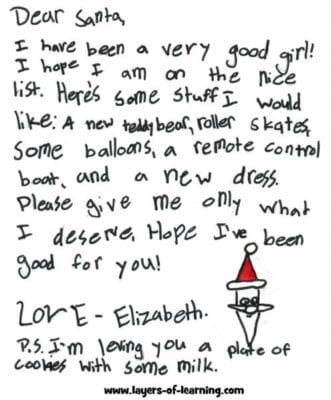 Dear Santa,
I have been a very good girl!
I hope I am on the nice
list. Here's some stuff I would
like: A new teddy bear, roller skates,
some balloons, a remote control
boat, and a new dress.
Please give me only what
I deserve, Hope I've been
good for you!
Love - Elizabeth.
P.S. I'm leving you a plate of
cookies with some milk.
www.layers-of-learning.com